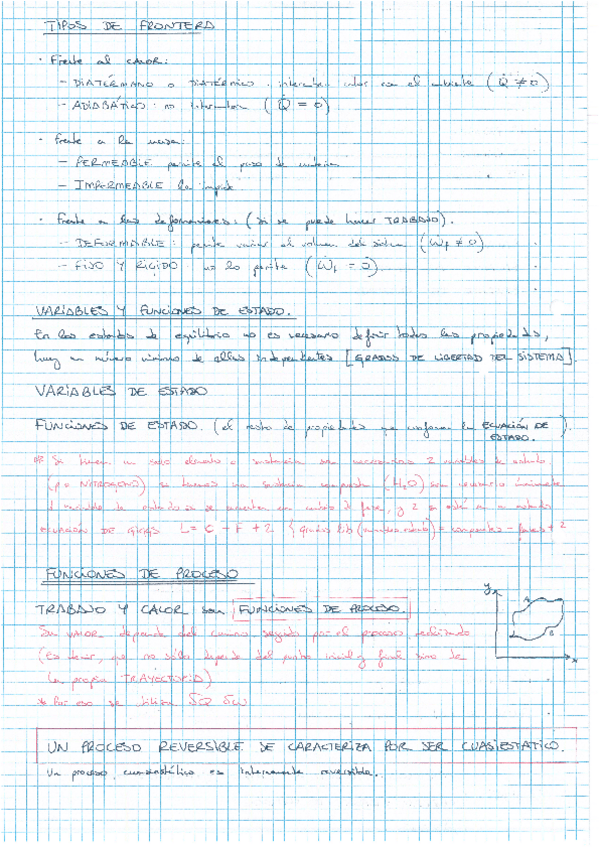 TIPOS DE FRONTERA
· Frente al CALOR:
– DIATÉRMANO o DIATÉRMICO: intercambia calor con el ambiente (Q̇ ≠ 0)
– ADIABÁTICO: no intercambia (Q̇ = 0)
· Frente a la masa:
– PERMEABLE permite el paso de materia
– IMPERMEABLE lo impide
· Frente a las deformaciones: (si se puede hacer TRABAJO).
– DEFORMABLE: permite variar el volumen del sistema (Wf ≠ 0)
– FIJO Y RÍGIDO: no lo permite (Wf = 0)
VARIABLES Y FUNCIONES DE ESTADO.
En los estados de equilibrio no es necesario definir todas las propiedades,
hay un número mínimo de ellas independientes [GRADOS DE LIBERTAD DEL SISTEMA].
VARIABLES DE ESTADO
FUNCIONES DE ESTADO. (el resto de propiedades que conforman la ECUACIÓN DE ESTADO.)
* Si tienes un solo elemento o sustancia son necesarias 2 variables de estado
(NITRÓGENO) si tienes una sustancia compuesta (H2O) son necesario únicamente
1 variable de estado si se encuentra en cambio de fase, y 2 si está en un estado
ECUACIÓN DE GIBBS L = C - F + 2 = componentes – fases + 2
FUNCIONES DE PROCESO
TRABAJO Y CALOR son FUNCIONES DE PROCESO.
Su VALOR depende del camino seguido por el proceso realizado
(Es decir, que no sólo depende del punto inicial y final sino de
la propia TRAYECTORIA)
* Por eso se utiliza δQ δW
y
A
B
x
UN PROCESO REVERSIBLE SE CARACTERIZA POR SER CUASIESTÁTICO.
Un proceso cuasiestático es internamente reversible.